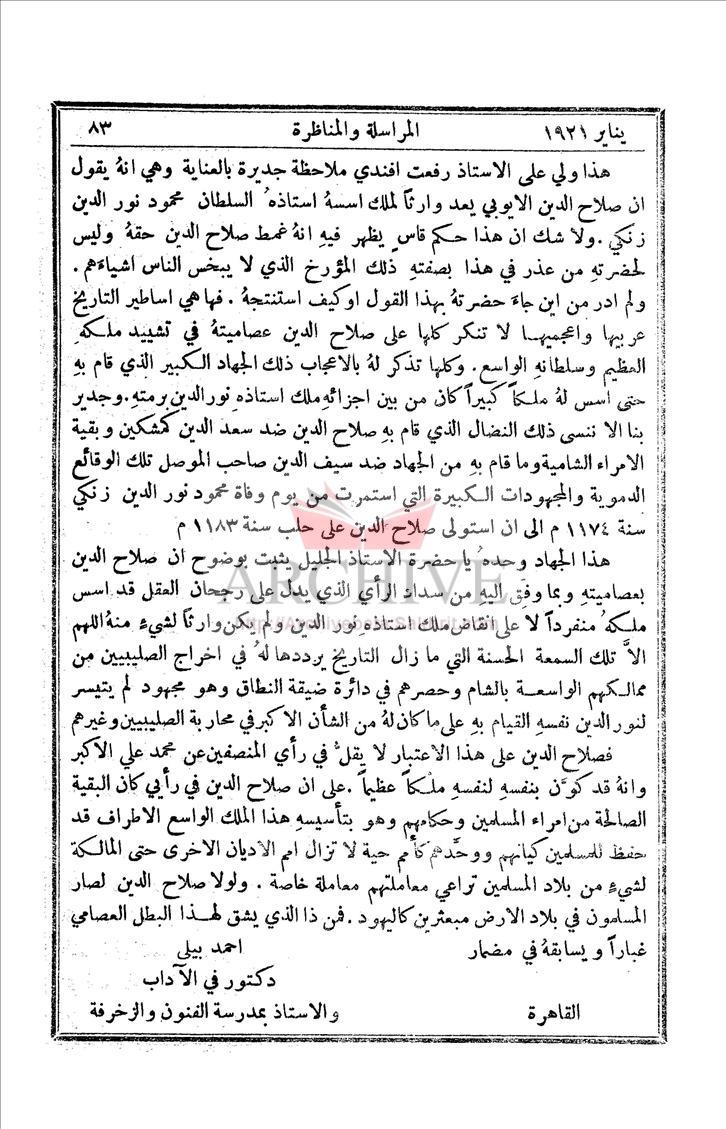 يناير ١٩٢١ المراسلة والمناظرة ٨٣
هذا ولي على الاستاذ رفعت افندي ملاحظة جديرة بالعناية وهي انهُ يقول
ان صلاح الدين الايوبي يعد وارثاً لملك اسسهُ استاذهُ السلطان محمود نور الدين
زنكي . ولا شك ان هذا حكم قاسٍ يظهر فيهِ انهُ غمط صلاح الدين حقهُ وليس
لحضرتهِ من عذر في هذا بصفتهِ ذلك المؤرخ الذي لا يبخس الناس اشياءهم .
ولم ادر من اين جاءَ حضرتهُ بهذا القول او كيف استنتجهُ . فها هي اساطير التاريخ
عربيها واعجميها لا تنكر كلها على صلاح الدين عصاميتهُ في تشييد ملكهِ
العظيم وسلطانهِ الواسع . وكلها تذكر لهُ بالاعجاب ذلك الجهاد الكبير الذي قام بهِ
حتى اسس لهُ ملكاً كبيراً كان من بين اجزائهِ ملك استاذهِ نور الدين برمتهِ . وجدير
بنا الا ننسى ذلك النضال الذي قام بهِ صلاح الدين ضد سعد الدين كمشكين وبقية
الامراء الشامية وما قام بهِ من الجهاد ضد سيف الدين صاحب الموصل تلك الوقائع
الدموية والمجهودات الكبيرة التي استمرت من يوم وفاة محمود نور الدين زنكي
سنة ١١٧٤ م الى ان استولى صلاح الدين على حلب سنة ١١٨٣ م
هذا الجهاد وحدهُ يا حضرة الاستاذ الجليل يثبت بوضوح ان صلاح الدين
بعصاميتهِ وبما وفق اليهِ من سداد الرأي الذي يدل على رجحان العقل قد اسس
ملكهُ منفرداً لا على انقاض ملك استاذهِ نور الدين ولم يكن وارثاً لشيءٍ منهُ اللهم
الاَّ تلك السمعة الحسنة التي ما زال التاريخ يرددها لهُ في اخراج الصليبيين من
ممالكهم الواسعة بالشام وحصرهم في دائرة ضيقة النطاق وهو مجهود لم يتيسر
لنور الدين نفسهِ القيام بهِ على ما كان لهُ من الشأن الاكبر في محاربة الصليبيين وغيرهم
فصلاح الدين على هذا الاعتبار لا يقلُّ في رأي المنصفين عن محمد علي الاكبر
وانهُ قد كوَّن بنفسهِ لنفسهِ ملكاً عظيماً . على ان صلاح الدين في رأيي كان البقية
الصالحة من امراء المسلمين وحكامهم وهو بتأسيسهِ هذا الملك الواسع الاطراف قد
حفظ للمسلمين كيانهم ووحَّدهم كأمم حية لا تزال امم الاديان الاخرى حتى المالكة
لشيءٍ من بلاد المسلمين تراعي معاملتهم معاملة خاصة . ولولا صلاح الدين لصار
المسلمون في بلاد الارض مبعثرين كاليهود . فمن ذا الذي يشق لهذا البطل العصامي
غباراً ويسابقهُ في مضمار احمد بيلى
دكتور في الآداب
القاهرة والاستاذ بمدرسة الفنون والزخرفة
ARCHIVE